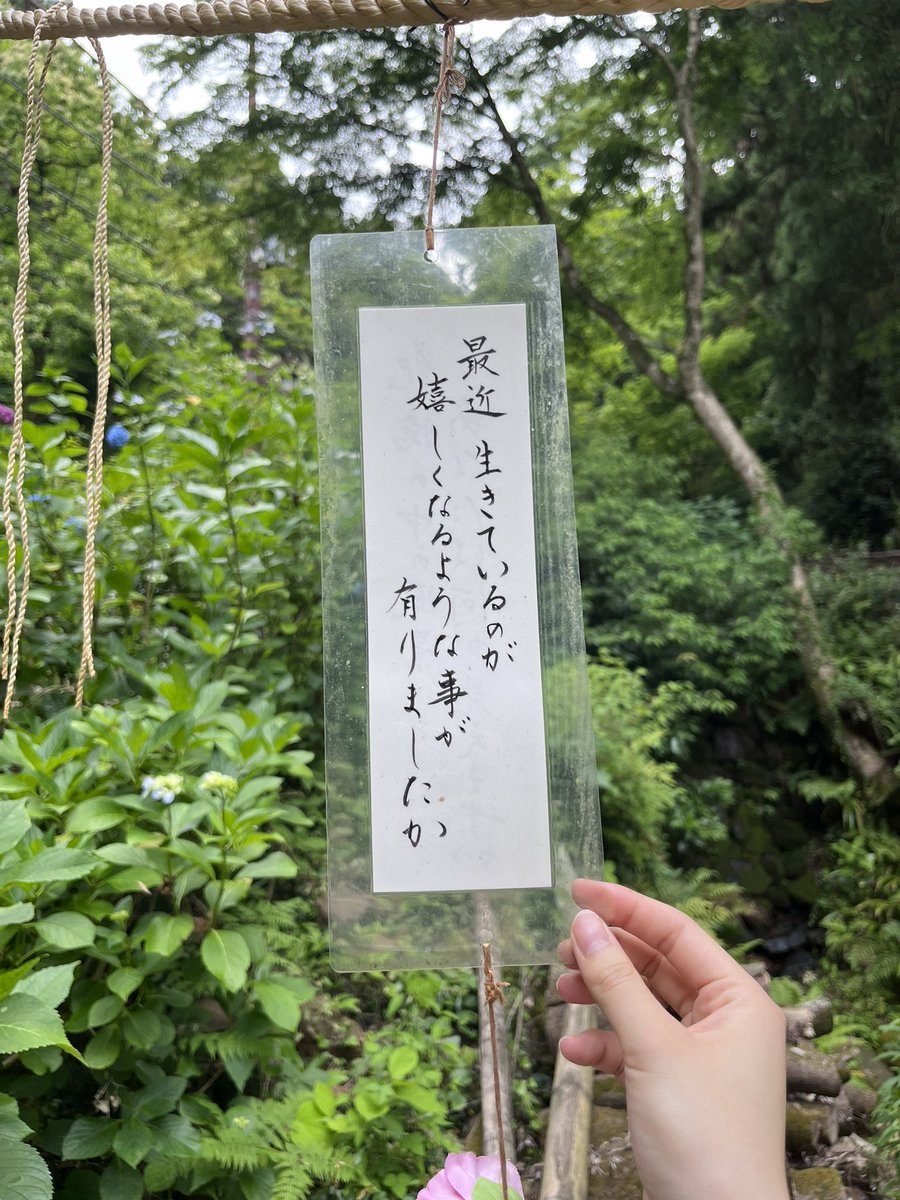 最近 生きているのが
嬉しくなるような事が
有りましたか